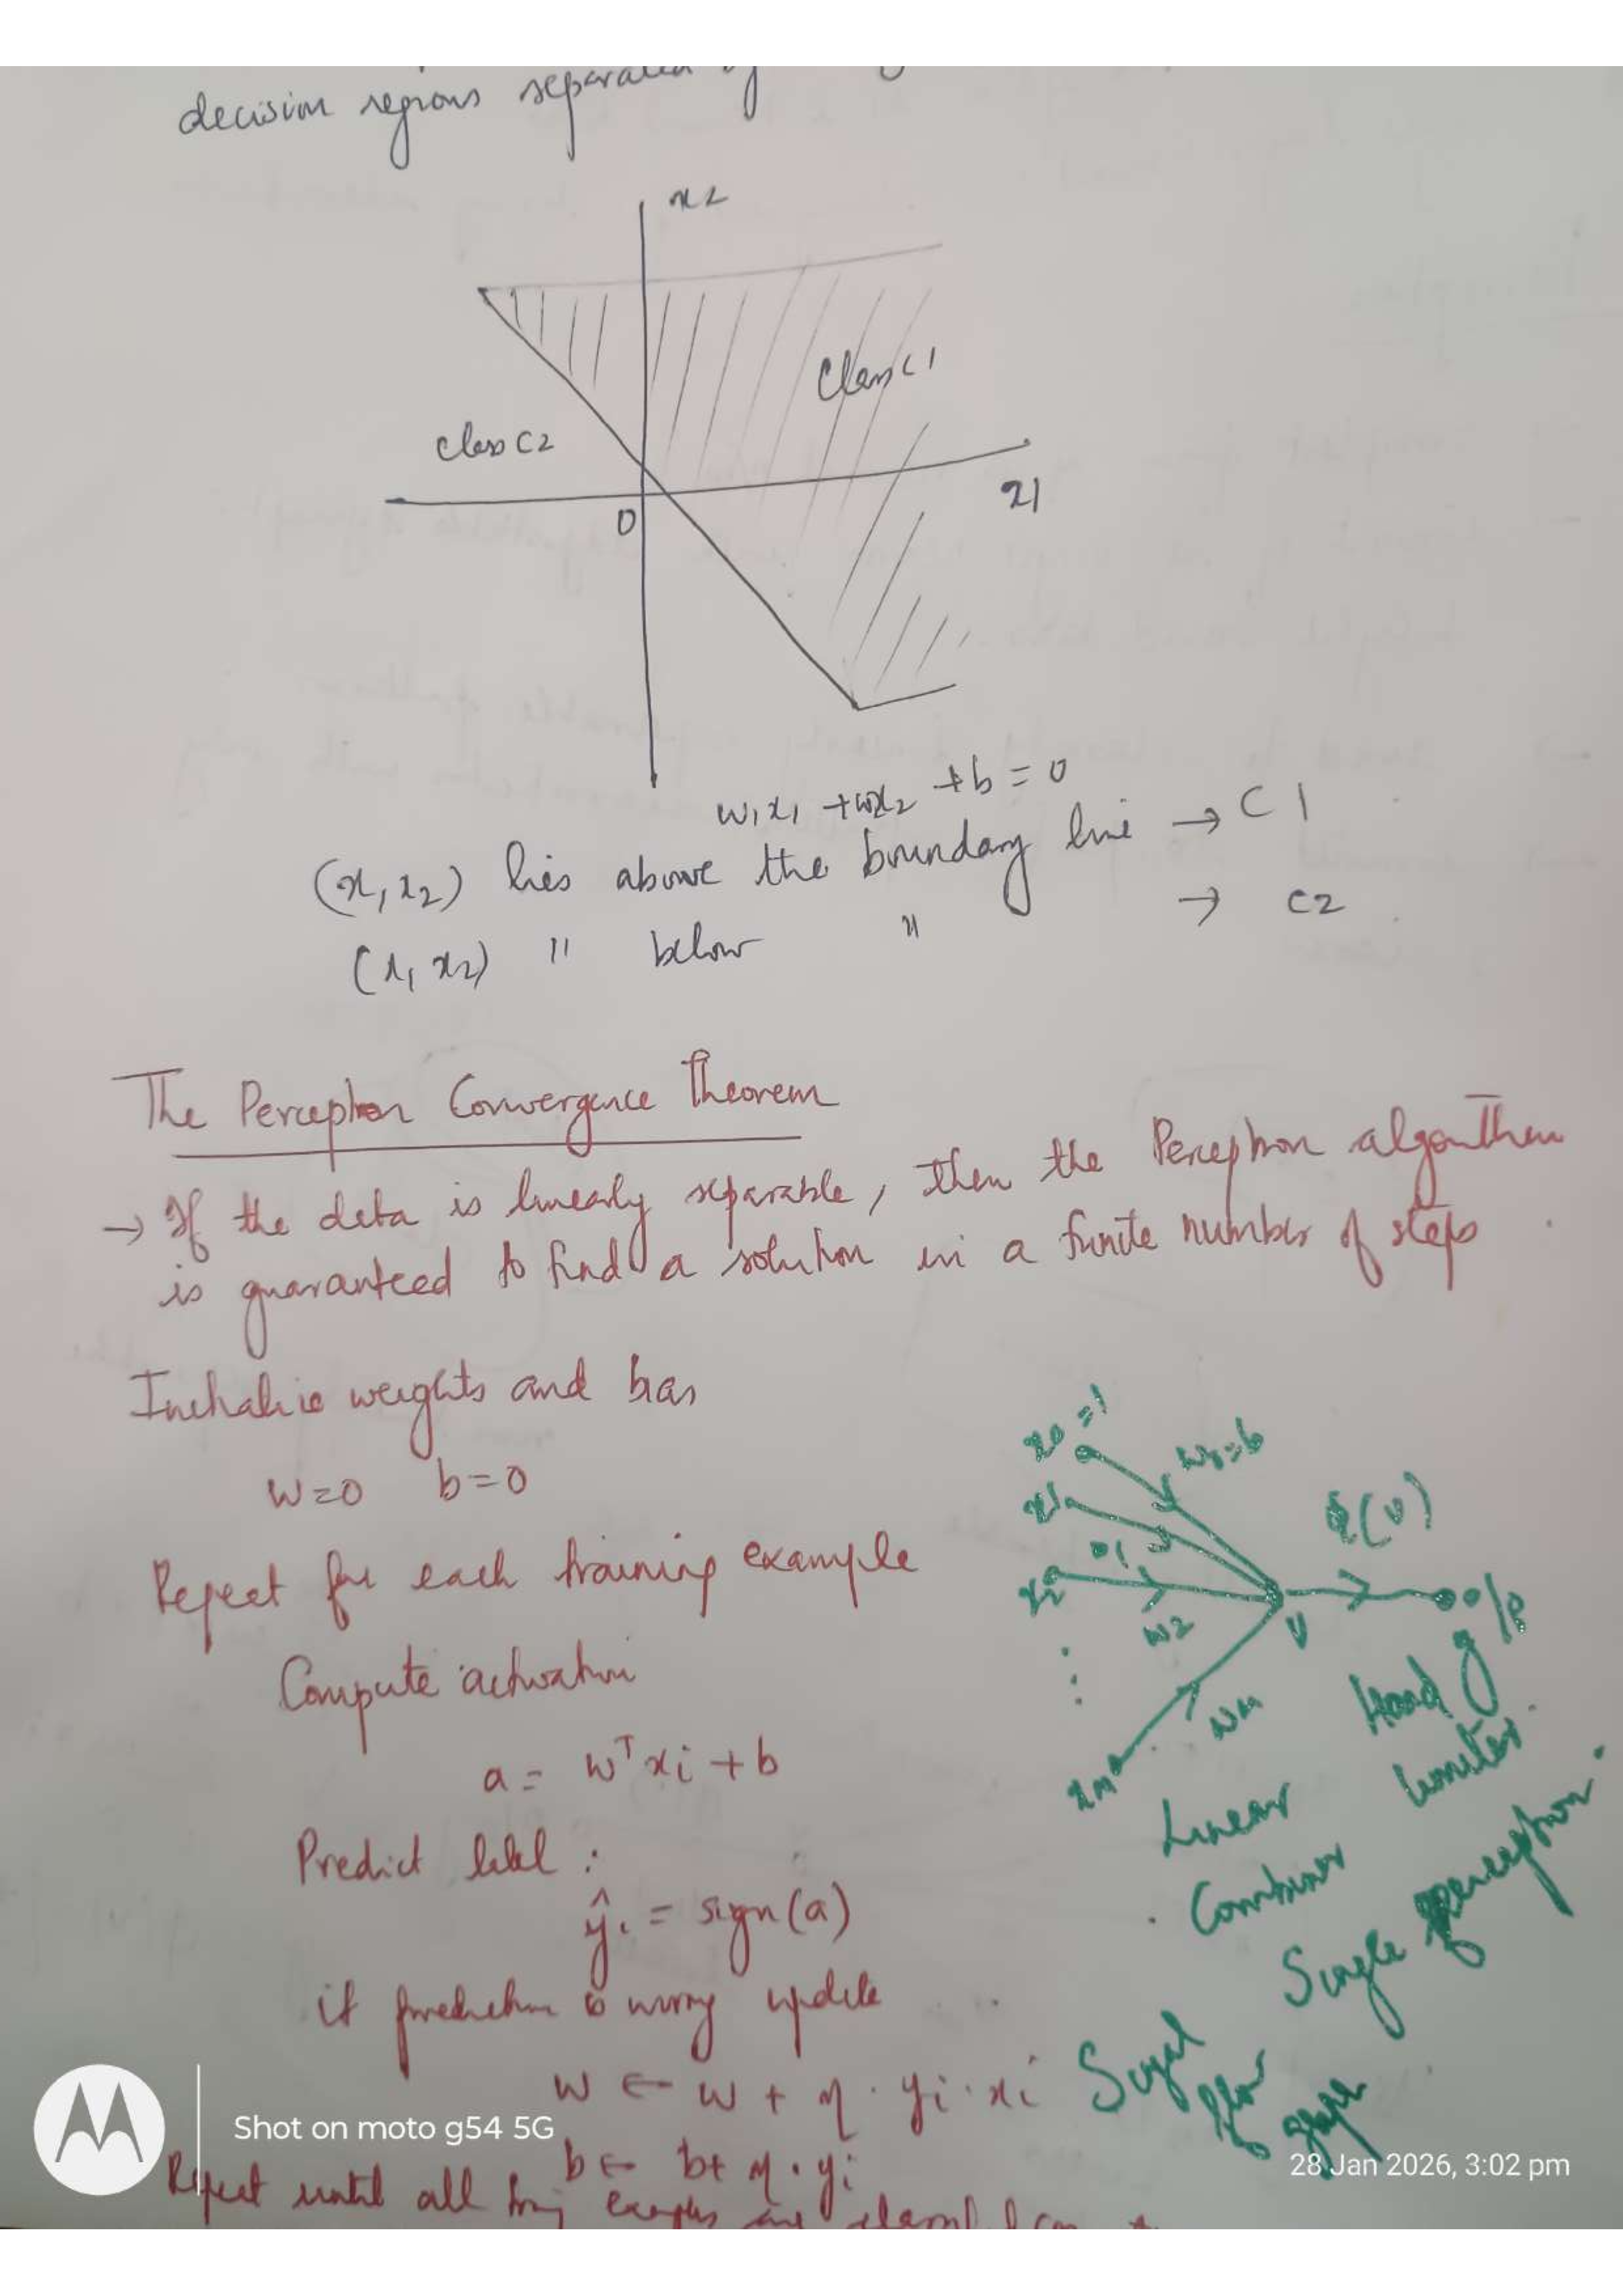 decision regions separated
x2
Class C1
class C2
0
x1
w1x1 + w2x2 + b = 0
(x1, x2) lies above the boundary line → C1
(x1 x2) " below " → C2
The Perceptron Convergence Theorem
→ If the data is linearly separable, then the Perceptron algorithm
is guaranteed to find a solution in a finite number of steps.
weights and bias
w=0 b=0
Repeat for each training example
Compute activation
a = wᵀxi + b
Predict label :
ŷi = sign(a)
if prediction is wrong update
w ← w + η · yi · xi
b ← b + η · yi
Repeat until all
x0 = 1
w0 = b
x1
x2
w2
⋮
xm
wm
v
φ(v)
o/p
y
Hard
limiter
Linear
Combiner
Single perceptron.
Signal
flow
graph
Shot on moto g54 5G
28 Jan 2026, 3:02 pm